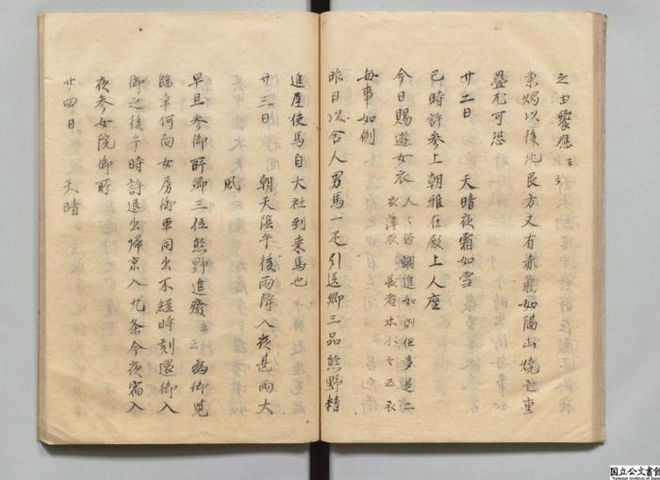 之由饗應云々
秉燭以後北艮方又有赤氣如隔山焼亡重
疊尤可恐
廿二日 天晴夜霜如雪
巳時許参上朝雅在殿上人座
今日賜遊女衣 人々皆調進如例但多是二
衣薄衣 長者 小々五衣
毎事如例
昨日以舎人男馬一疋引送卿三品熊野精
進屋使馬自大社到来馬也
廿三日 朝天陰午後雨降入夜甚雨大
風
早旦参御所卿三位熊野進發云々為御覧
臨幸何向女房御車同出不經時刻還御入
御之後午時許退出帰京入九条今夜宿入
夜参女院御所
廿四日 天晴
国立公文書館
National Archives of Japan